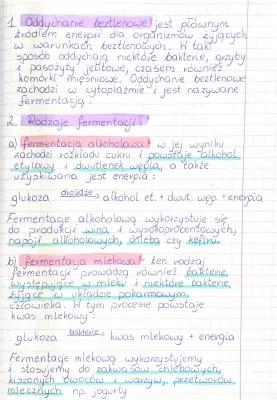 1. Oddychanie beztlenowe jest głównym
źródłem energii dla organizmów żyjących
w warunkach beztlenowych. W taki
sposób oddychają niektóre bakterie, grzyby
i pasożyty jelitowe, czasem również
komórki mięśniowe. Oddychanie beztlenowe
zachodzi w cytoplazmie i jest nazywane
fermentacją.
2. Rodzaje fermentacji:
a) fermentacja alkoholowa - w jej wyniku
zachodzi rozkładu cukru i powstaje alkohol
etylowy i dwutlenek węgla, a także
uzyskiwana jest energia:
drożdże
glukoza → alkohol et. + dwut. węg. + energia
Fermentację alkoholową wykorzystuje się
do produkcji wina i wysokoprocentowych,
napoji alkoholowych, chleba czy kefiru.
b) fermentacja mlekowa - ten rodzaj
fermentacji prowadzą również bakterie,
występujące w mleku i niektóre bakterie
żyjące w układzie pokarmowym,
człowieka. W tym procesie powstaje
kwas mlekowy:
bakterie
glukoza → kwas mlekowy + energia
Fermentację mlekową wykorzystujemy
i stosujemy do zakwasów chlebowych,
kiszonych owoców i warzyw, przetworów
mlecznych np. jogurty